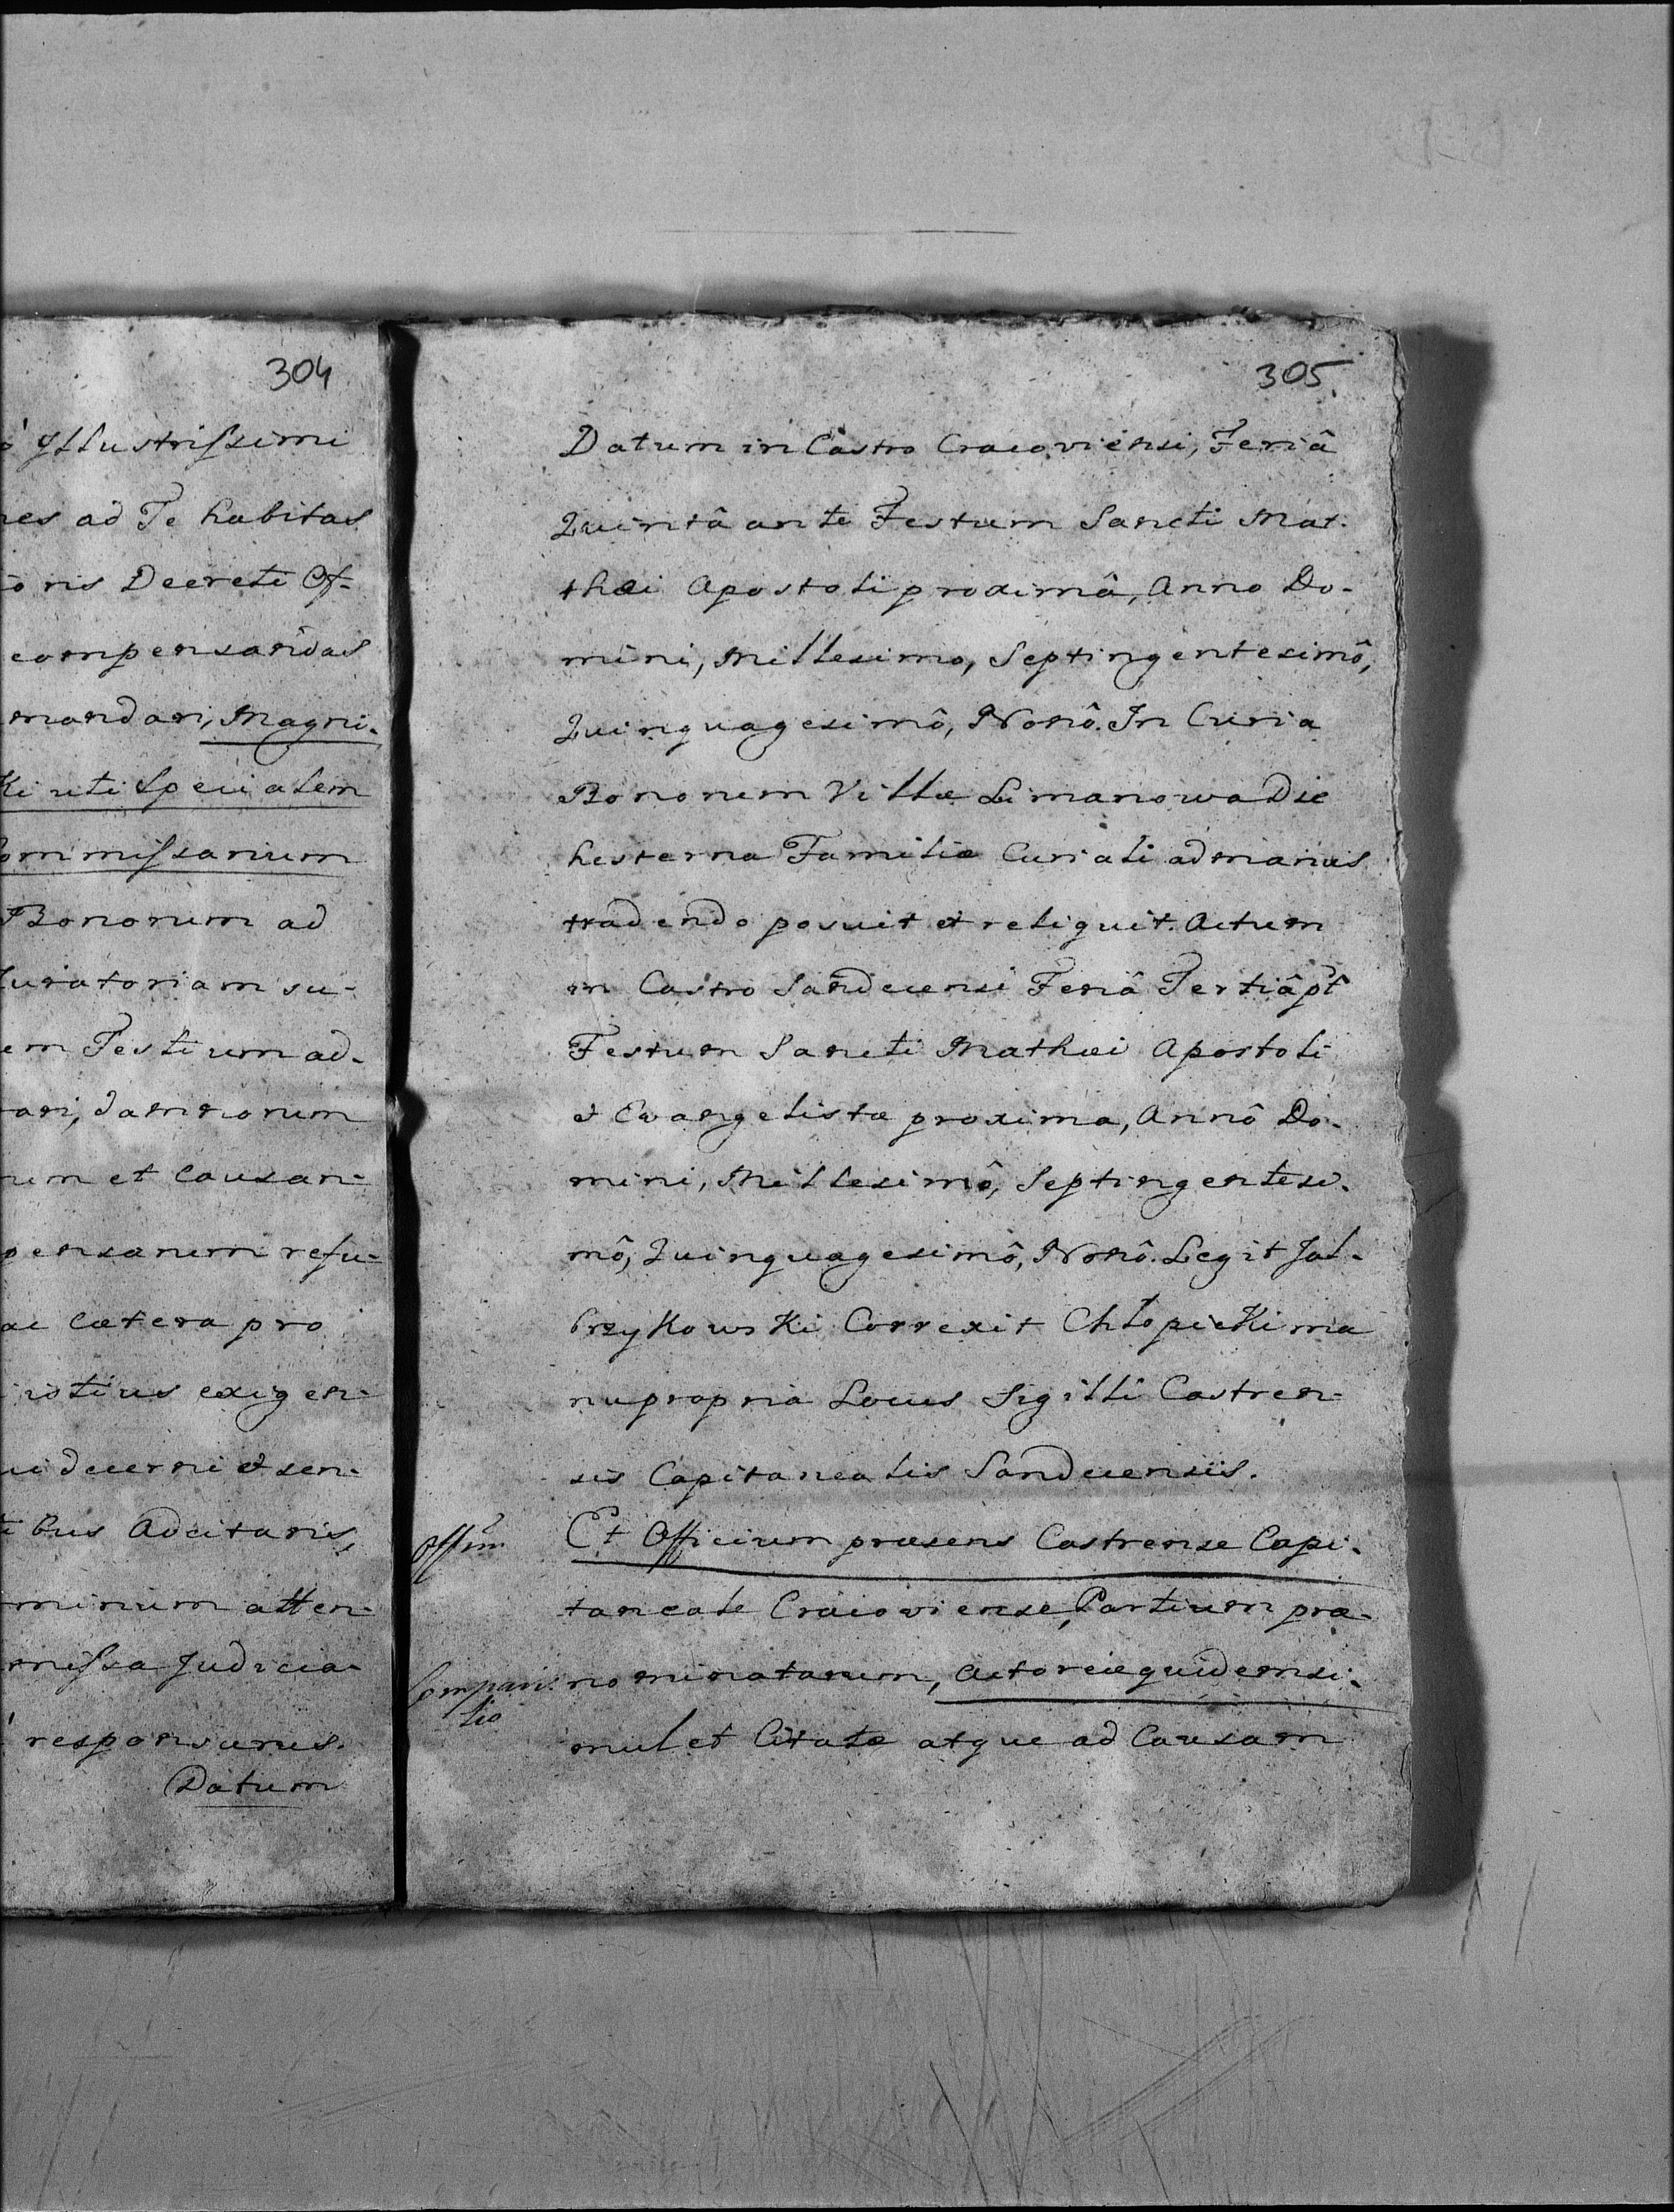 304
Illustrissimi
ad Te habitas
Decreti Of-
compensandas
mandari, Magni-
uti Specialem
Commissarium
Bonorum ad
su-
Testium ad-
damnorum
et causan-
refu-
ac cætera pro
istius exigen-
decerni et sen-
Adcitaris,
atten-
Judicia-
responsurus.
Datum
305
Datum in Castro Cracoviensi, Feriâ
Quintâ ante Festum Sancti Mat-
thæi Apostoli proximâ, Anno Do-
mini, Millesimo, Septingentesimô,
Quinquagesimô, Nonô. In Curia
Bonorum Villæ Limanowa Die
hesterna Familiæ Curiali ad manus
tradendo posuit et reliquit. Actum
in Castro Sandecensi Feriâ Tertiâ pt
Festum Sancti Mathæi Apostoli
et Evangelistæ proxima, Annô Do-
mini, Millesimô, Septingentesi-
mô, Quinquagesimô, Nonô. Legit Jał-
brzykowski Correxit Chłopicki ma
nu propria Locus Sigilli Castren-
sis Capitanealis Sandecensis.
Offium Et Officium præsens Castrense Capi-
taneale Cracoviense, Partium præ-
Compari- nominatarum, Actoreæ quidem si-
tio
mul et Citatæ atque ad Causam